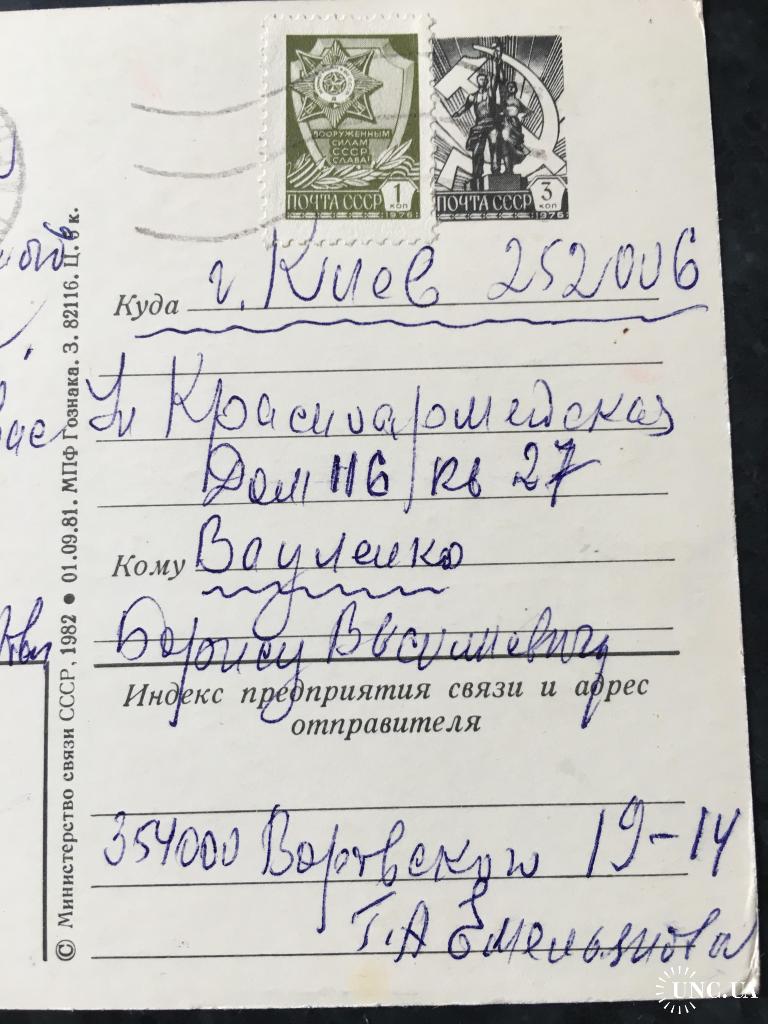 ВООРУЖЕННЫМ
СИЛАМ
СССР
СЛАВА!
1
КОП
ПОЧТА СССР
1976
3
КОП
ПОЧТА СССР
1976
Куда г. Киев 252006
Ул Красноармейская
Дом 116/кв 27
Кому Вауленко
Борису Васильевичу
Индекс предприятия связи и адрес
отправителя
354000 Воровского 19-14
Т.А Емельянова
© Министерство связи СССР, 1982 ● 01.09.81. МПФ Гознака. З. 82116. Ц. к.
вас
UNC.UA